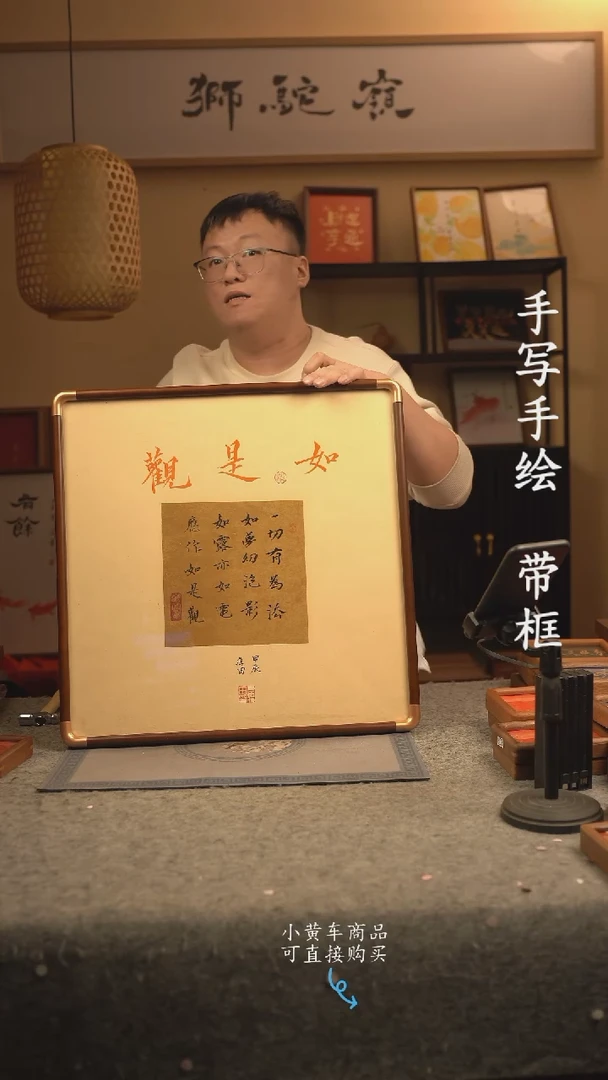 獅駝嶺
手写手绘 带框
如是觀
一切有為法
如夢幻泡影
如露亦如電
應作如是觀
甲辰
有餘
小黄车商品
可直接购买